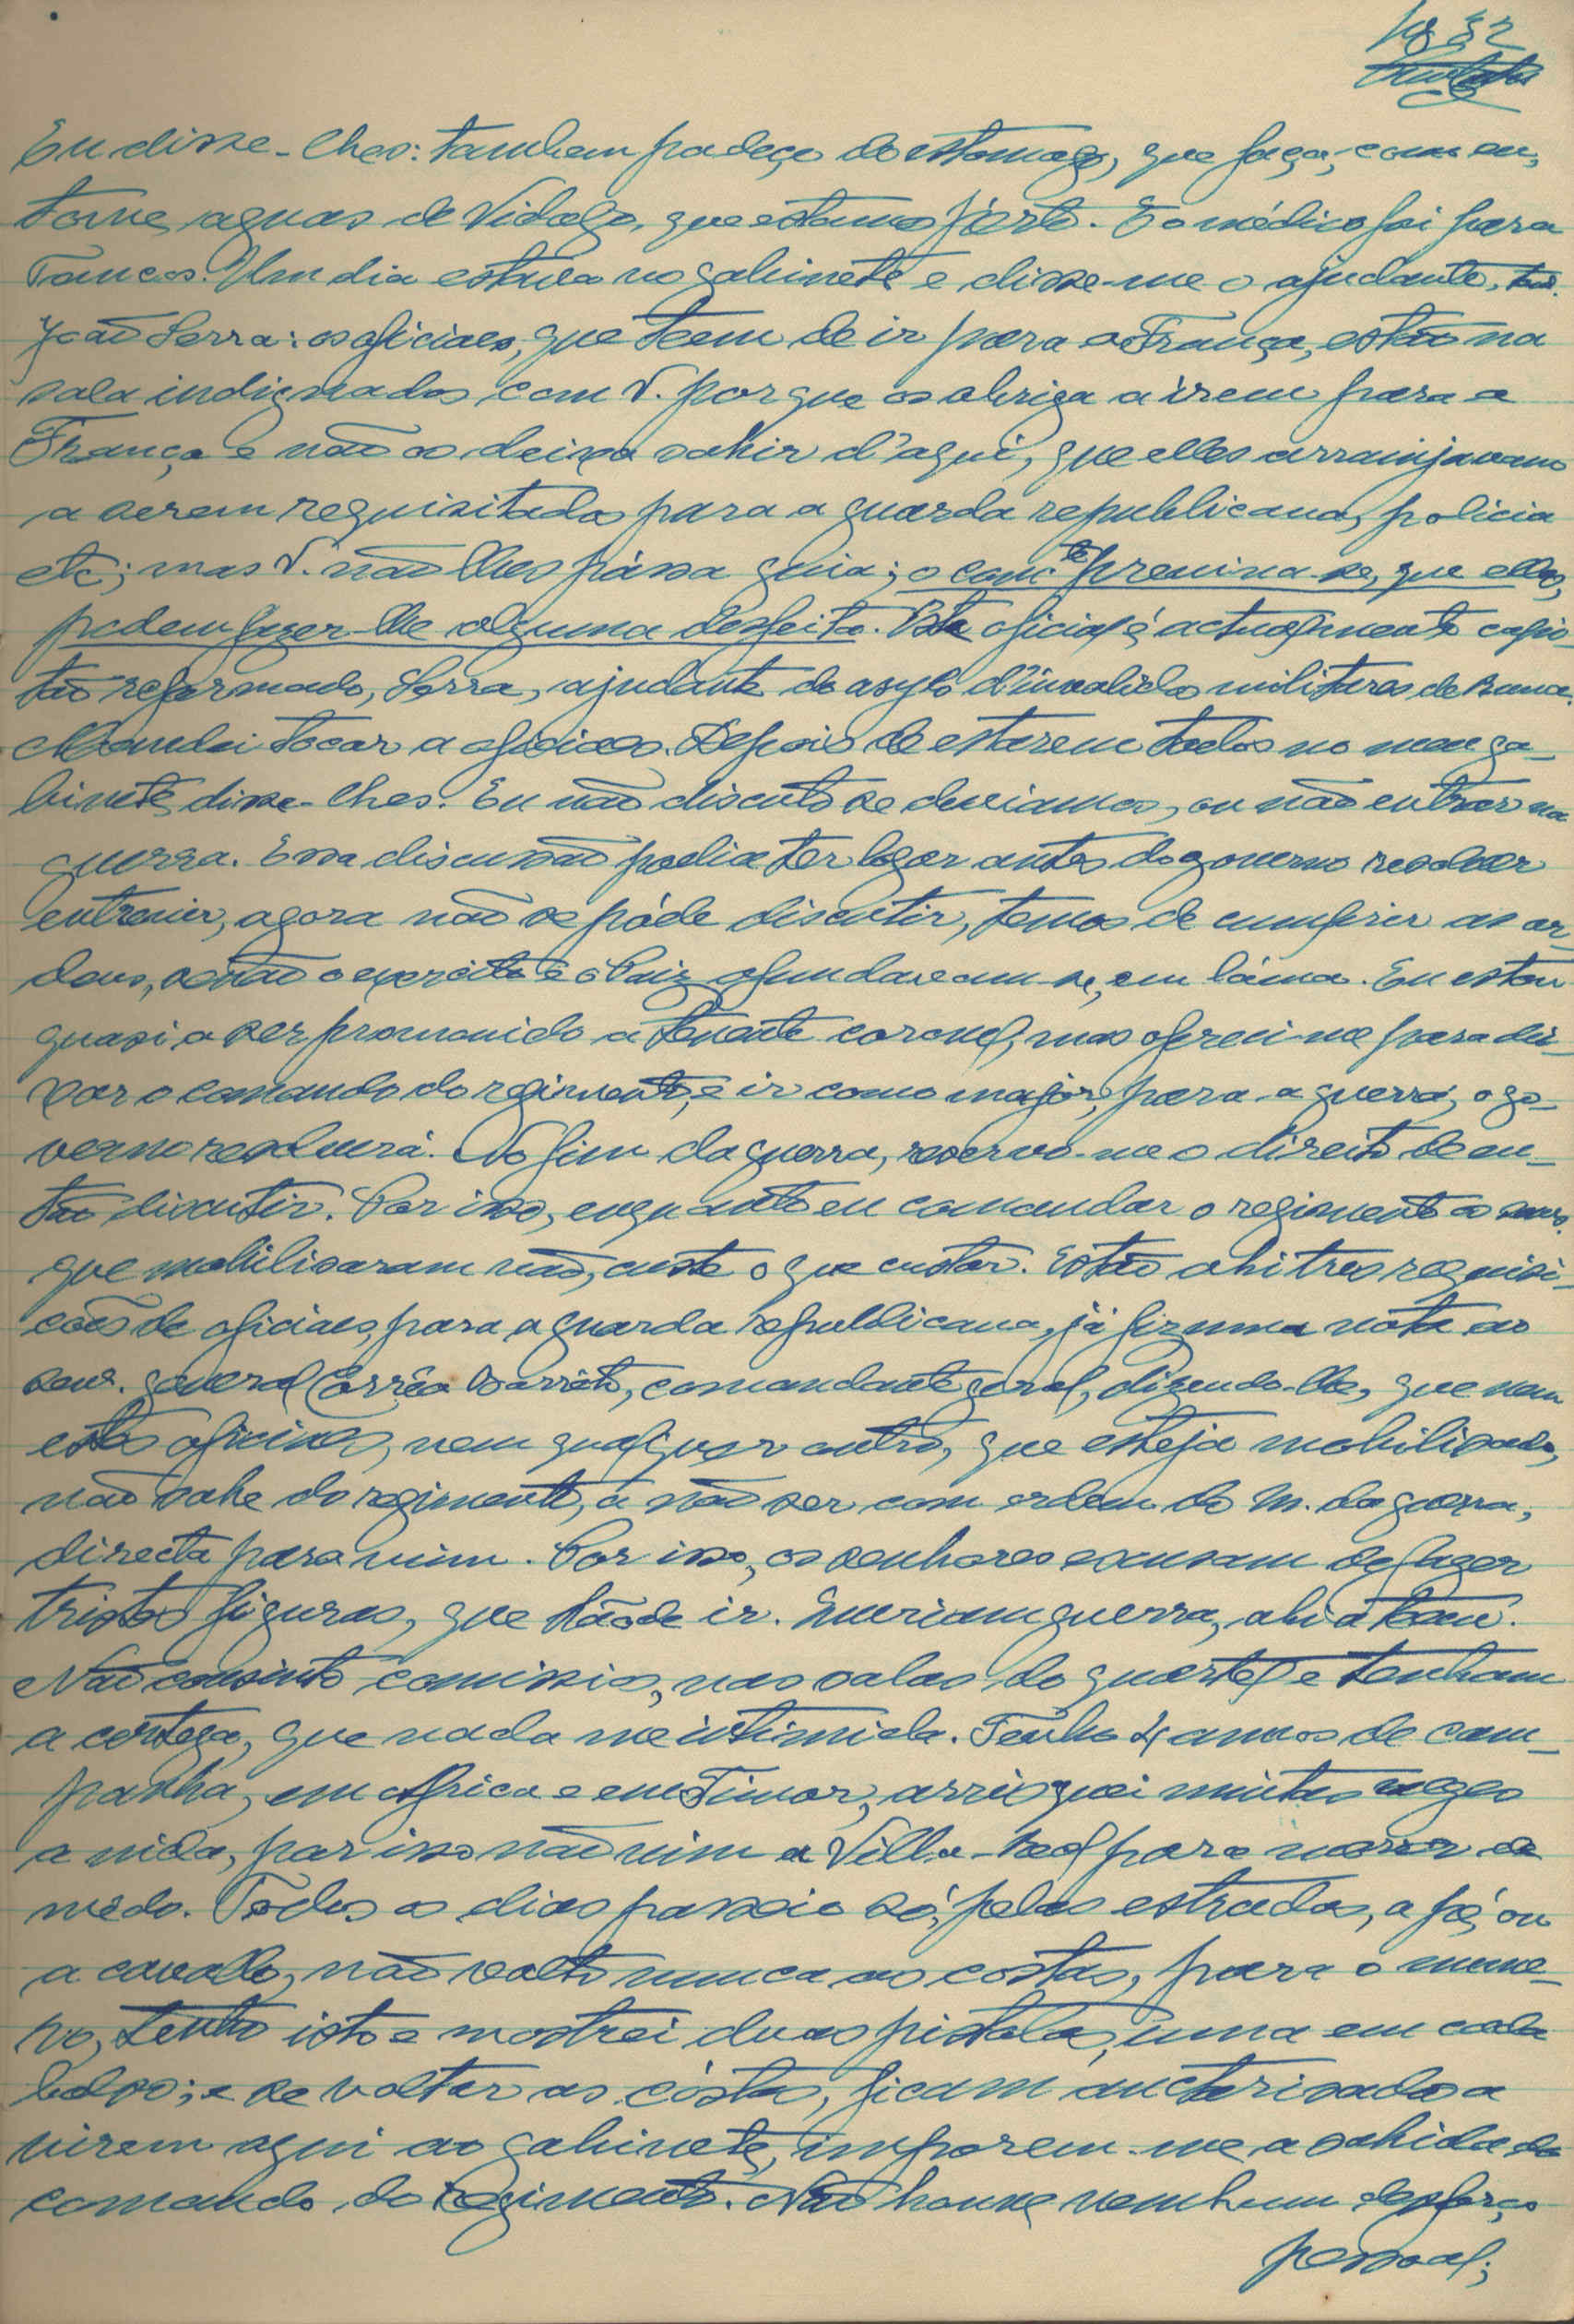 32
Eu disse-lhes: tambem padeço do estomago, que faça, como eu,
tome aguas de Vidago, que estamos perto. E o médico foi para
Tancos. Um dia estava no gabinete e disse-me o ajudante, ten.
João Serra: os oficiaes, que teem de ir para a França, estão na
sala indignados com V. porque os obriga a irem para a
França e não os deixa sahir d'aqui, que elles arrainjavam
a serem requisitados para a guarda republicana, policia
etc; mas V. não lhes pássa guia; o comc.te previna-se, que elles,
podem fazer-lhe alguma desfeita. Este oficial é actualmente capi-
tão reformado, Serra, ajudante do asylo d'invalidos militares de Runa.
Mandei tocar a oficiaes. Depois de estarem todos no meu ga-
binete, disse-lhes. Eu não discuto se deviamos, ou não entrar na
guerra. Essa discussão podia ter logar antes do governo resolver
entrevir, agora não se póde discutir, temos de cumprir as or-
dens, senão o exercito e o Paiz afundavam-se, em láma. Eu estou
quasi a ser promovido a tenente coronel, mas ofereci-me para dei-
xar o comando do regimento, e ir como major, para a guerra, o go-
verno resolverá. No fim da guerra, reservo-me o direito de en-
tão discutir. Por isso, enquanto eu comandar o regimento os
que mobilisaram vão, custe o que custar. Estão ahi tres requisi-
cões de oficiaes, para a guarda republicana, já fiz uma nota ao
senr. general Corrêa Barrêto, comandante geral, dizendo-lhe, que nem
estes oficiaes, nem qualquer outro, que esteja mobilisado,
não sahe do regimento, a não ser com ordem do M. da guerra,
directa para mim. Por isso, os senhores escusam de fazer
tristes figuras, que hãode ir. Queriam guerra, ahi a teem.
Não consinto comissios, nas salas do quartel e tenham
a certeza, que nada me intimida. Tenho 4 annos de cam-
panha, em Africa e em Timor, arrisquei muitas vezes
a vida, por isso não vim a Villa-Real para morrer de
medo. Todos os dias passeio só, pelas estradas, a pé, ou
a cavallo, não volto nunca as costas, para o inimi-
go, tenho isto e mostrei duas pistolas, uma em cada
bolso; e se voltar as cóstas, ficam auctorisados a
virem aqui ao gabinete, imporem-me a sahida do
comando do regimento. Não houve nemhum desforço
pessoal;